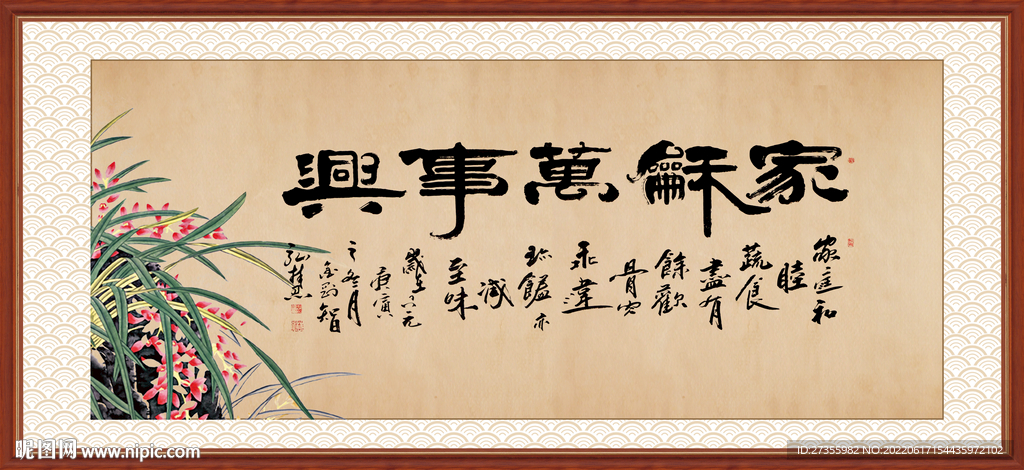 家龢萬事興
家庭和
睦
蔬食
盡有
餘歡
骨肉
乖違
珍饈亦
減
至味
庚寅
之冬月
昵图网 www.nipic.com
ID:27355982 NO:20220617154435972102